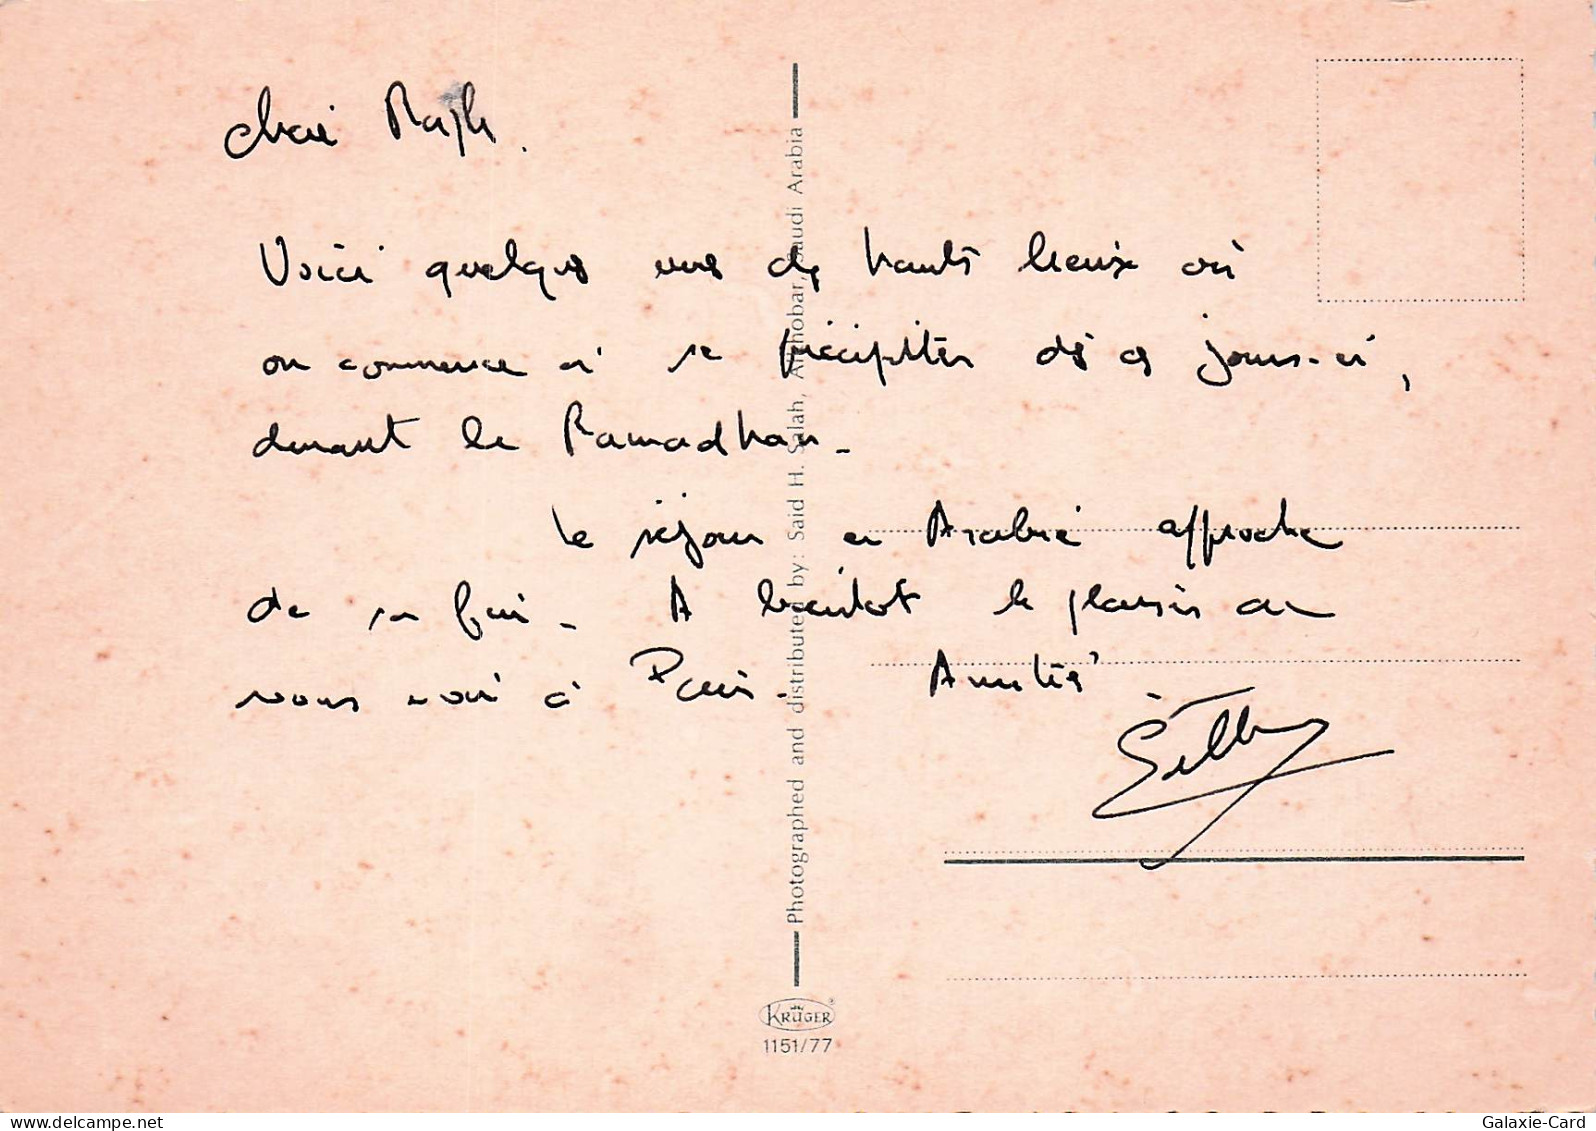 Voici quelques vues de hauts lieux où
on commence à se précipiter dès ces jours-ci,
durant le Ramadhan.
Le séjour en Arabie approche
de sa fin. A bientot le plaisir de
vous voir à Paris. Amitiés
Photographed and distributed by: Said H. Salah, Alkhobar, Saudi Arabia
KRÜGER
1151/77
www.delcampe.net
Galaxie-Card